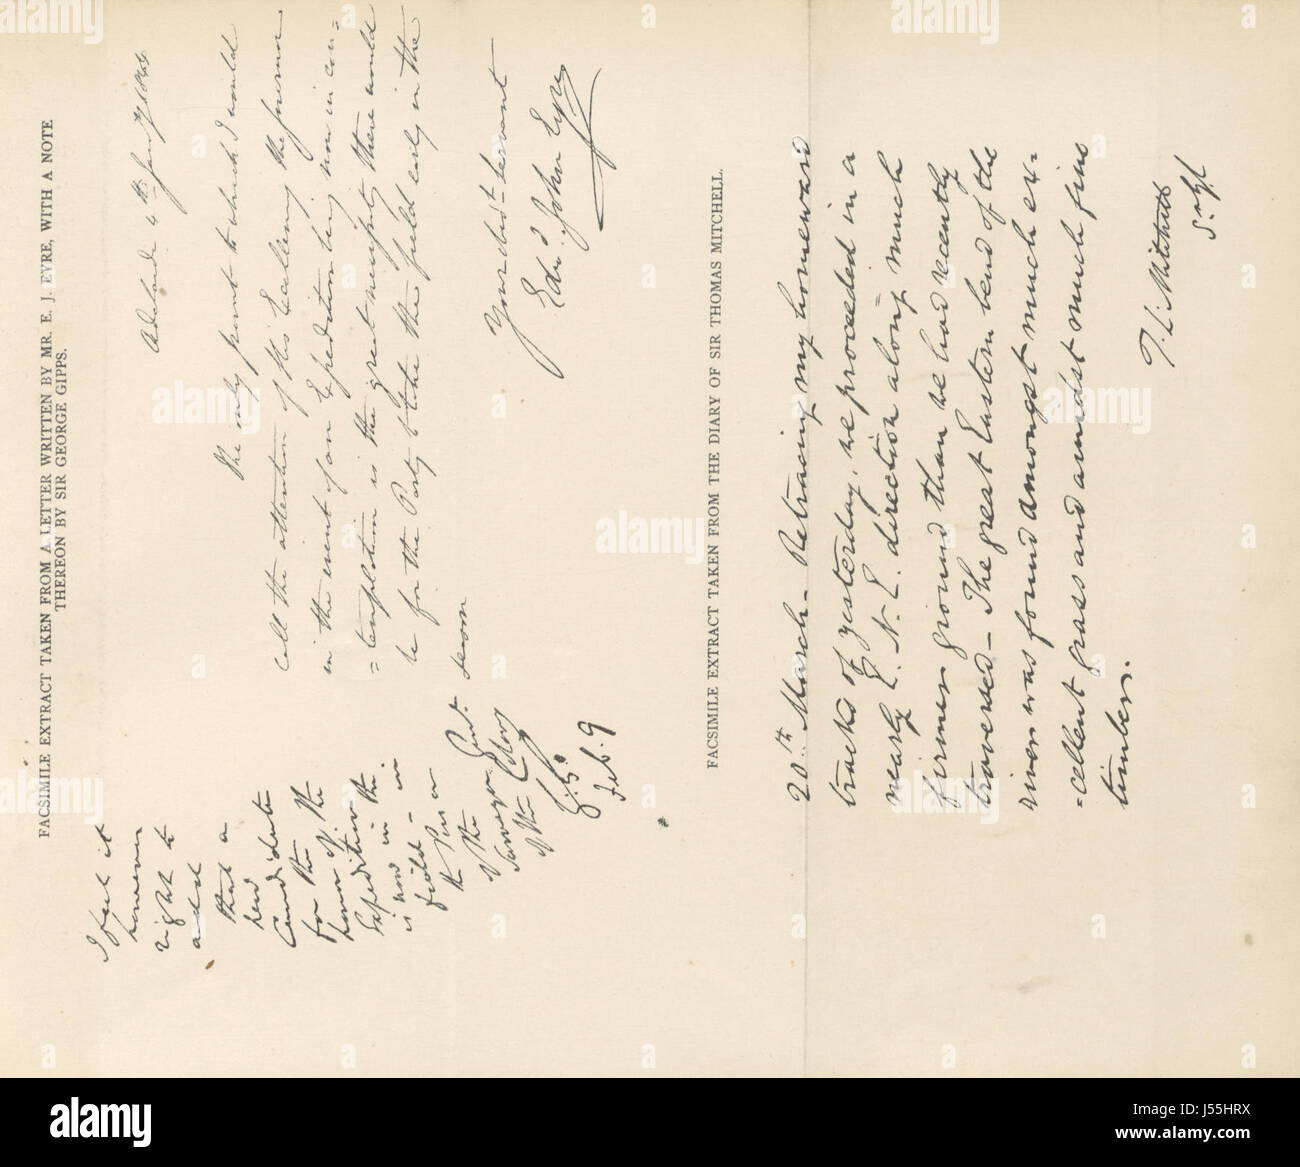 FACSIMILE EXTRACT TAKEN FROM A LETTER WRITTEN BY MR. E. J. EYRE, WITH A NOTE
THEREON BY SIR GEORGE GIPPS.
Adelaide 4th Jany 1844
The only point to which I would
call the attention of His Excellency the Governor
in the event of an Expedition being now in con=
=templation is the great necessity there would
be for the Party to take the field early in the
season
Your obedt servant
Edwd John Eyre
I feel it
however
right to
add
that a
new
Candidate
for the
honor of the
Expedition
is now in the
field – in
the Person
of the
Surveyor Genl.
of the Colony
G.G.
Feb. 9
FACSIMILE EXTRACT TAKEN FROM THE DIARY OF SIR THOMAS MITCHELL.
20th March – Retracing my homeward
tracks of yesterday, we proceeded in a
nearly E. N. E. direction along much
firmer ground than we had recently
traversed – The great Eastern bend of the
river was found amongst much ex=
=cellent grass and amidst much fine
timber.
T. L. Mitchell
alamy
a
alamy
J55HRX
www.alamy.com